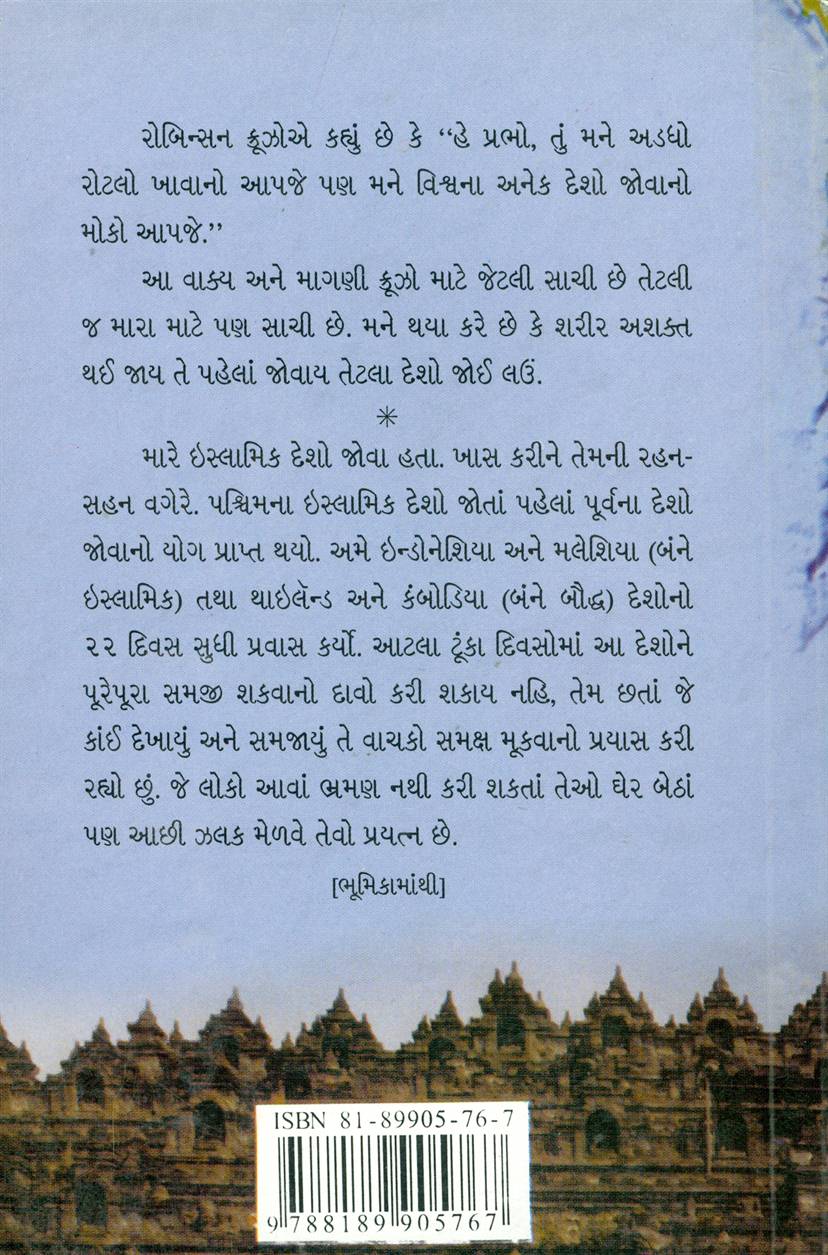 રોબિન્સન ક્રૂઝોએ કહ્યું છે કે “હે પ્રભો, તું મને અડધો
રોટલો ખાવાનો આપજે પણ મને વિશ્વના અનેક દેશો જોવાનો
મોકો આપજે.”
આ વાક્ય અને માગણી ક્રૂઝો માટે જેટલી સાચી છે તેટલી
જ મારા માટે પણ સાચી છે. મને થયા કરે છે કે શરીર અશક્ત
થઈ જાય તે પહેલાં જોવાય તેટલા દેશો જોઈ લઉં.
✳
મારે ઇસ્લામિક દેશો જોવા હતા. ખાસ કરીને તેમની રહન-
સહન વગેરે. પશ્ચિમના ઇસ્લામિક દેશો જોતાં પહેલાં પૂર્વના દેશો
જોવાનો યોગ પ્રાપ્ત થયો. અમે ઇન્ડોનેશિયા અને મલેશિયા (બંને
ઇસ્લામિક) તથા થાઇલૅન્ડ અને કંબોડિયા (બંને બૌદ્ધ) દેશોનો
૨૨ દિવસ સુધી પ્રવાસ કર્યો. આટલા ટૂંકા દિવસોમાં આ દેશોને
પૂરેપૂરા સમજી શકવાનો દાવો કરી શકાય નહિ, તેમ છતાં જે
કાંઈ દેખાયું અને સમજાયું તે વાચકો સમક્ષ મૂકવાનો પ્રયાસ કરી
રહ્યો છું. જે લોકો આવાં ભ્રમણ નથી કરી શકતાં તેઓ ઘેર બેઠાં
પણ આછી ઝલક મેળવે તેવો પ્રયત્ન છે.
[ભૂમિકામાંથી]
ISBN 81-89905-76-7
9 788189 905767